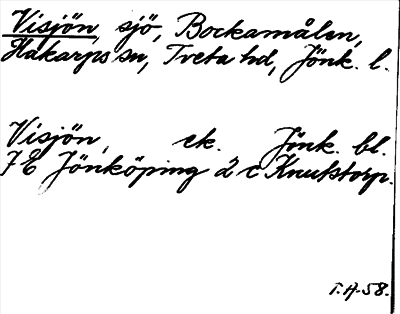 Visjön, sjö, Bockamålen,
Hakarps sn, Tveta hd, Jönk. l.
Visjön, ek. Jönk. bl.
7 E Jönköping 2 c Knutstorp.
T.A-58.